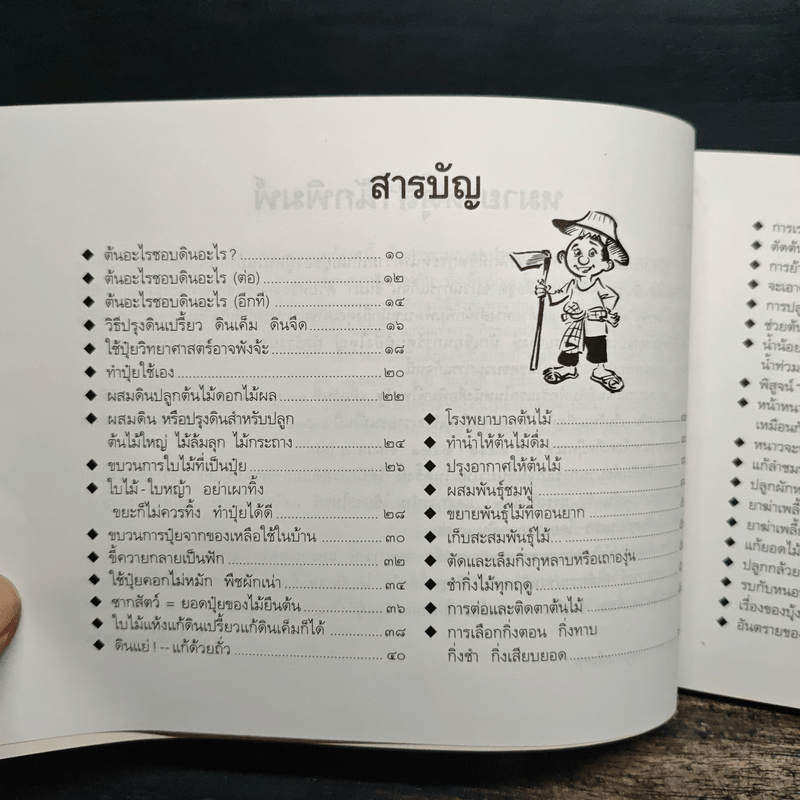 สารบัญ
◆ ต้นอะไรชอบดินอะไร? ๑๐
◆ ต้นอะไรชอบดินอะไร (ต่อ) ๑๒
◆ ต้นอะไรชอบดินอะไร (อีกที) ๑๔
◆ วิธีปรุงดินเปรี้ยว ดินเค็ม ดินจืด ๑๖
◆ ใช้ปุ๋ยวิทยาศาสตร์อาจพังจ้ะ ๑๘
◆ ทำปุ๋ยใช้เอง ๒๐
◆ ผสมดินปลูกต้นไม้ดอกไม้ผล ๒๒
◆ ผสมดิน หรือปรุงดินสำหรับปลูก
ต้นไม้ใหญ่ ไม้ล้มลุก ไม้กระถาง ๒๔
◆ ขบวนการใบไม้ที่เป็นปุ๋ย ๒๖
◆ ใบไม้-ใบหญ้า อย่าเผาทิ้ง
ขยะก็ไม่ควรทิ้ง ทำปุ๋ยได้ดี ๒๘
◆ ขบวนการปุ๋ยจากของเหลือใช้ในบ้าน ๓๐
◆ ขี้ควายกลายเป็นฟัก ๓๒
◆ ใช้ปุ๋ยคอกไม่หมัก พืชผักเน่า ๓๔
◆ ซากสัตว์ = ยอดปุ๋ยของไม้ยืนต้น ๓๖
◆ ใบไม้แห้งแก้ดินเปรี้ยวแก้ดินเค็มก็ได้ ๓๘
◆ ดินแย่!--แก้ด้วยถั่ว ๔๐
◆ โรงพยาบาลต้นไม้
◆ ทำน้ำให้ต้นไม้ดื่ม
◆ ปรุงอากาศให้ต้นไม้
◆ ผสมพันธุ์ชมพู่
◆ ขยายพันธุ์ไม้ที่ตอนยาก
◆ เก็บสะสมพันธุ์ไม้
◆ ตัดและเล็มกิ่งกุหลาบหรือเถาองุ่น
◆ ชำกิ่งไม้ทุกฤดู
◆ การต่อและติดตาต้นไม้
◆ การเลือกกิ่งตอน กิ่งทาบ
กิ่งชำ กิ่งเสียบยอด
◆ การเร
◆ ตัดต้น
◆ การย้า
◆ จะเอา
◆ การปลู
◆ ช่วยต้น
◆ น้ำน้อย
น้ำท่วม
◆ พิสูจน์
◆ หน้าหน
เหมือนก
◆ หนาวจะ
◆ แก้ลำ
◆ ปลูกผัก
◆ ยาฆ่าเพลี้
◆ ยาฆ่าเพลี้
◆ แก้ยอดไม้
◆ ปลูกกล้วย
◆ รบกับหนอ
◆ เรื่องของบุ้ง
◆ อันตรายของ